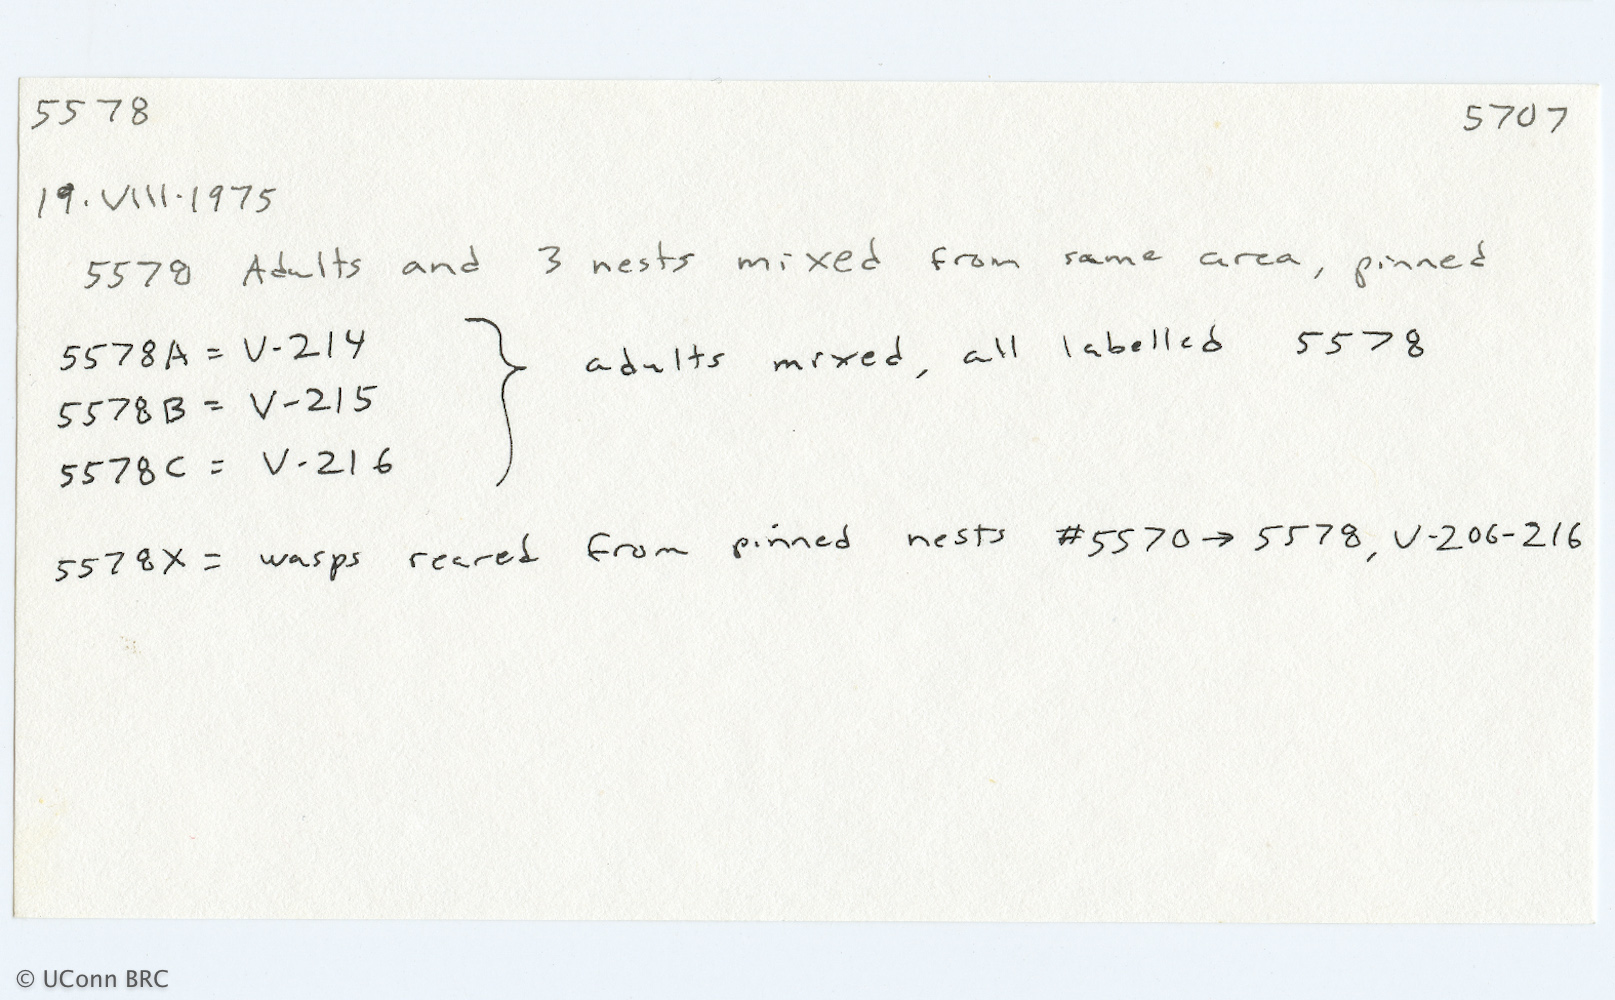 5578 5707
19.VIII.1975
5578 Adults and 3 nests mixed from same area, pinned
5578A = V-214 } adults mixed, all labelled 5578
5578B = V-215
5578C = V-216
5578X = wasps reared from pinned nests #5570 → 5578, V-206-216
© UConn BRC